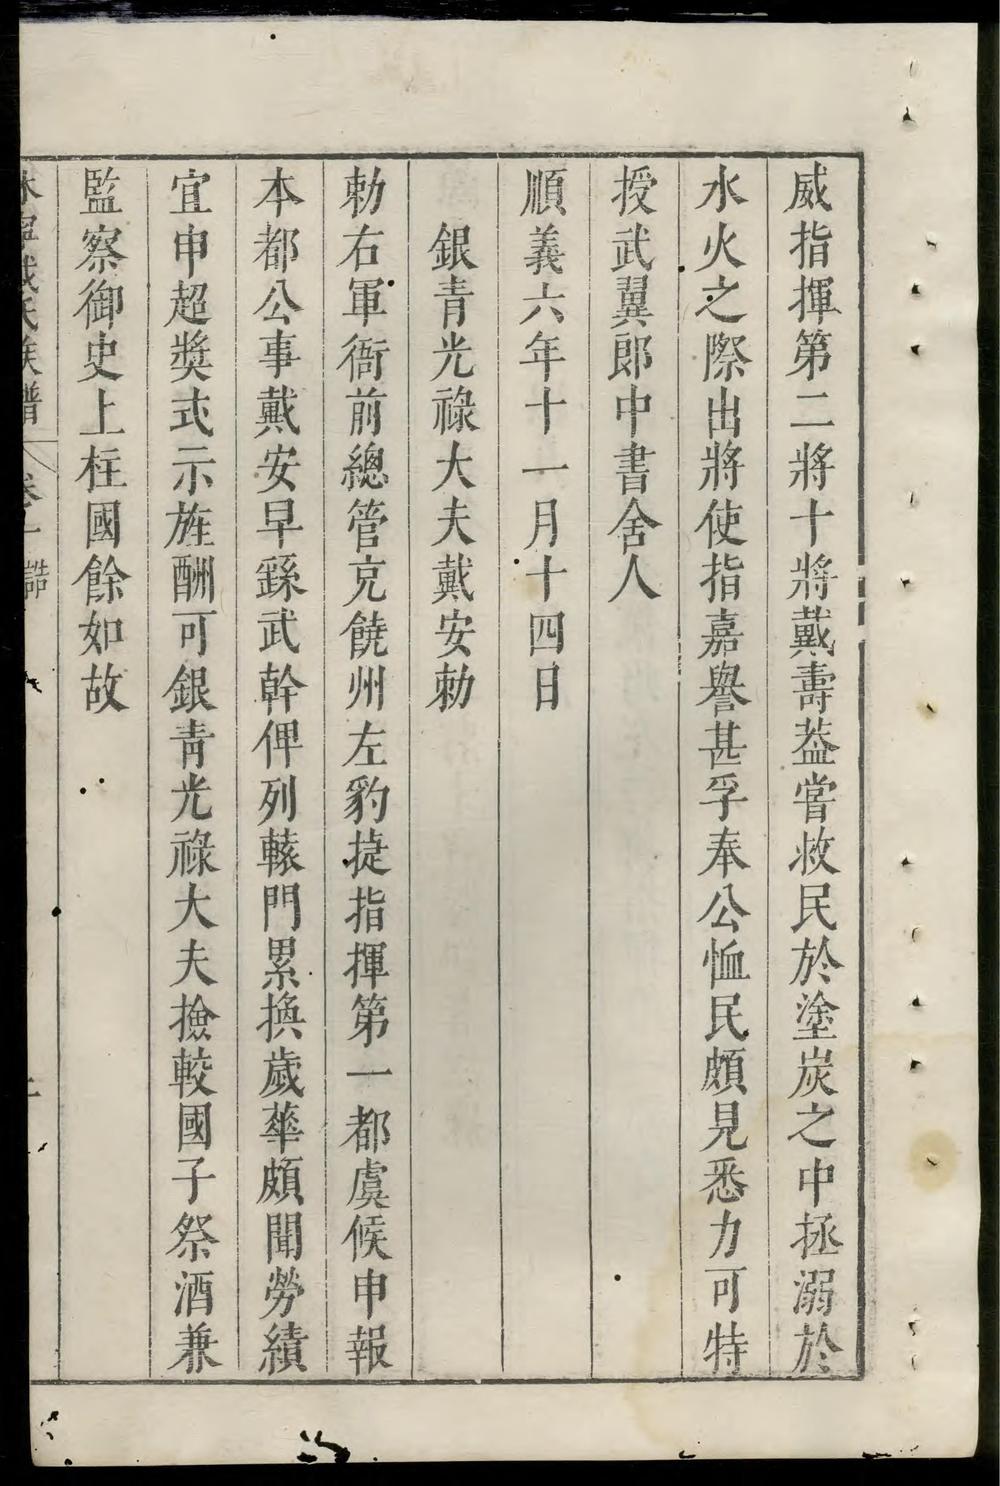 威指揮第二將十將戴壽葢嘗救民於塗炭之中拯溺於
水火之際出將使指嘉譽甚孚奉公恤民頗見悉力可特
授武翼郎中書舍人
順義六年十一月十四日
銀青光祿大夫戴安勅
勅右軍衙前總管克饒州左豹捷指揮第一都虞候申報
本都公事戴安早繇武幹俾列轅門累換歲華頗聞勞績
宜申超奬式示旌酬可銀青光祿大夫撿較國子祭酒兼
監察御史上柱國餘如故
休寧戴氏族譜 卷一 誥